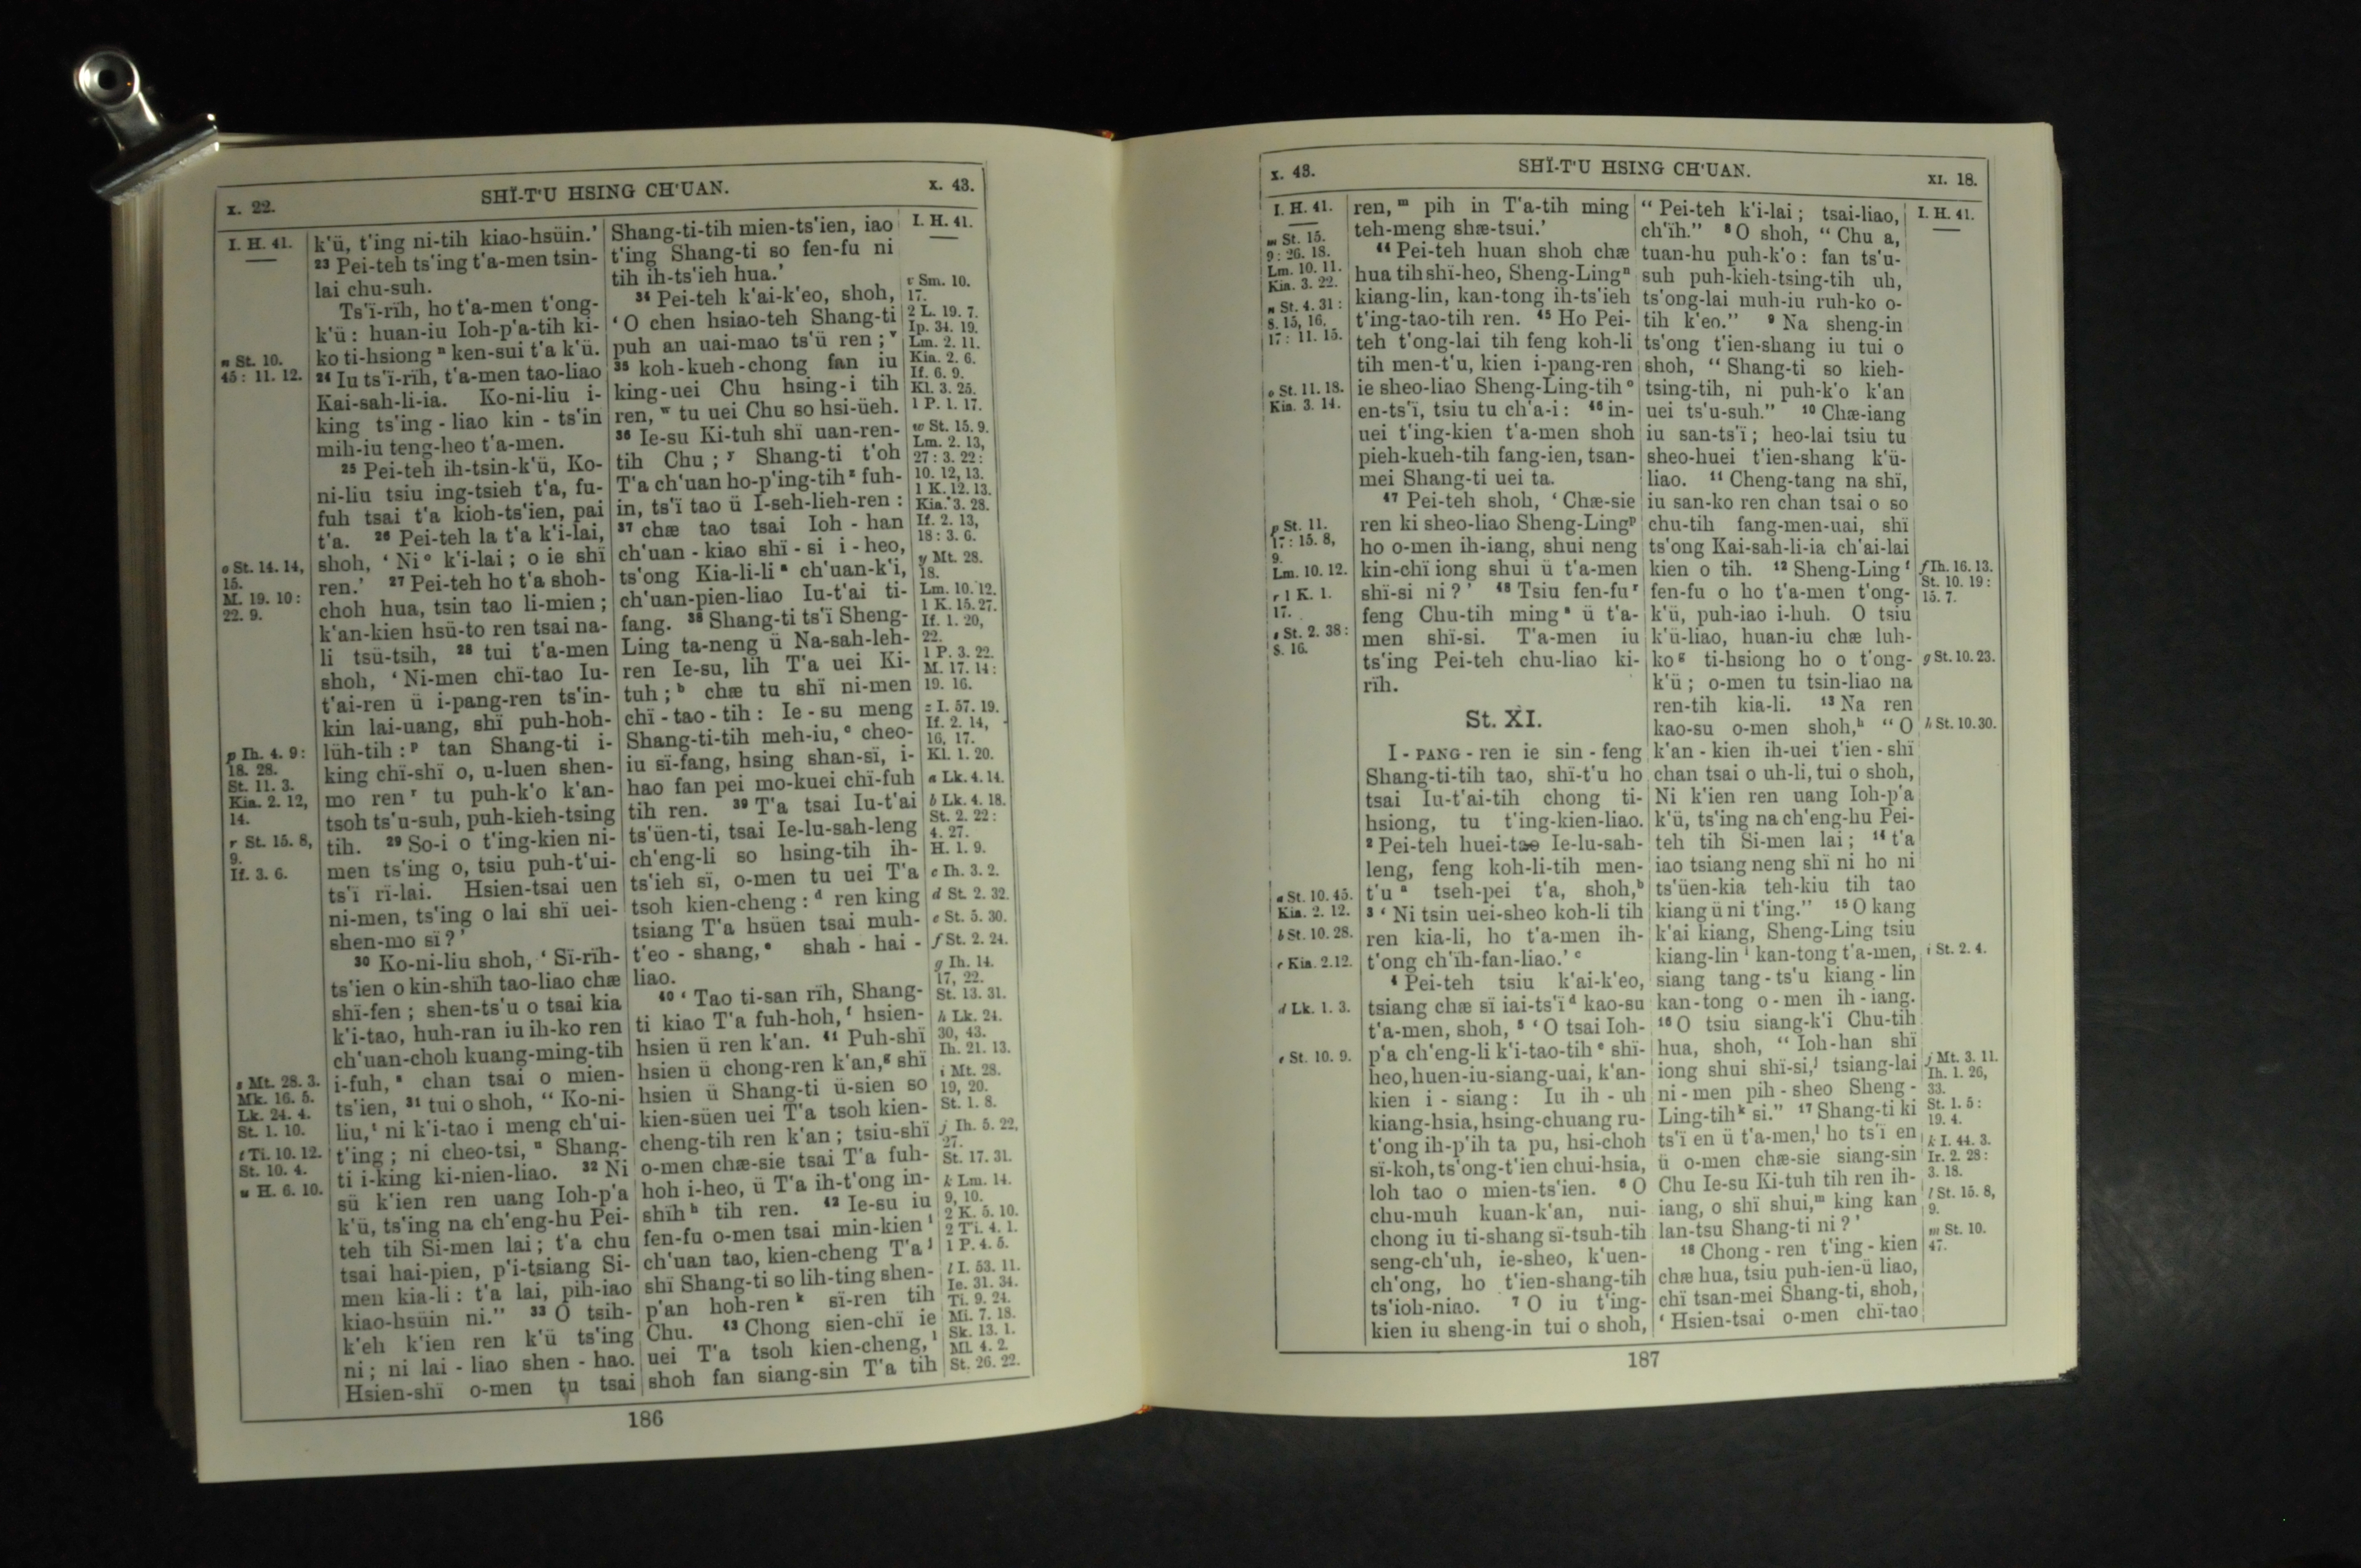 x. 22.
SHÏ-T'U HSING CH'UAN.
x. 43.
I. H. 41.
n St. 10.
45: 11. 12.
o St. 14. 14,
15.
M. 19. 10:
22. 9.
p Ih. 4. 9:
18. 28.
St. 11. 3.
Kia. 2. 12,
14.
r St. 15. 8,
9.
If. 3. 6.
s Mt. 28. 3.
Mk. 16. 5.
Lk. 24. 4.
St. 1. 10.
t Ti. 10. 12.
St. 10. 4.
u H. 6. 10.
k'ü, t'ing ni-tih kiao-hsüin.'
23 Pei-teh ts'ing t'a-men tsin-
lai chu-suh.
Ts'ï-rïh, ho t'a-men t'ong-
k'ü: huan-iu Ioh-p'a-tih ki-
ko ti-hsiong n ken-sui t'a k'ü.
24 Iu ts'ï-rïh, t'a-men tao-liao
Kai-sah-li-ia. Ko-ni-liu i-
king ts'ing-liao kin-ts'in
mih-iu teng-heo t'a-men.
25 Pei-teh ih-tsin-k'ü, Ko-
ni-liu tsiu ing-tsieh t'a, fu-
fuh tsai t'a kioh-ts'ien, pai
t'a. 26 Pei-teh la t'a k'i-lai,
shoh, 'Ni o k'i-lai; o ie shï
ren.' 27 Pei-teh ho t'a shoh-
choh hua, tsin tao li-mien;
k'an-kien hsü-to ren tsai na-
li tsü-tsih, 28 tui t'a-men
shoh, 'Ni-men chï-tao Iu-
t'ai-ren ü i-pang-ren ts'in-
kin lai-uang, shï puh-hoh-
lüh-tih: p tan Shang-ti i-
king chï-shï o, u-luen shen-
mo ren r tu puh-k'o k'an-
tsoh ts'u-suh, puh-kieh-tsing
tih. 29 So-i o t'ing-kien ni-
men ts'ing o, tsiu puh-t'ui-
ts'ï rï-lai. Hsien-tsai uen
ni-men, ts'ing o lai shï uei-
shen-mo sï?'
30 Ko-ni-liu shoh, 'Sï-rïh-
ts'ien o kin-shïh tao-liao chæ
shï-fen; shen-ts'u o tsai kia
k'i-tao, huh-ran iu ih-ko ren
ch'uan-choh kuang-ming-tih
i-fuh, s chan tsai o mien-
ts'ien, 31 tui o shoh, "Ko-ni-
liu, t ni k'i-tao i meng ch'ui-
t'ing; ni cheo-tsi, u Shang-
ti i-king ki-nien-liao. 32 Ni
sü k'ien ren uang Ioh-p'a
k'ü, ts'ing na ch'eng-hu Pei-
teh tih Si-men lai; t'a chu
tsai hai-pien, p'i-tsiang Si-
men kia-li: t'a lai, pih-iao
kiao-hsüin ni." 33 O tsih-
k'eh k'ien ren k'ü ts'ing
ni; ni lai-liao shen-hao.
Hsien-shï o-men tu tsai
Shang-ti-tih mien-ts'ien, iao
t'ing Shang-ti so fen-fu ni
tih ih-ts'ieh hua.'
34 Pei-teh k'ai-k'eo, shoh,
'O chen hsiao-teh Shang-ti
puh an uai-mao ts'ü ren; v
35 koh-kueh-chong fan iu
king-uei Chu hsing-i tih
ren, w tu uei Chu so hsi-üeh.
36 Ie-su Ki-tuh shï uan-ren-
tih Chu; y Shang-ti t'oh
T'a ch'uan ho-p'ing-tih z fuh-
in, ts'ï tao ü I-seh-lieh-ren:
37 chæ tao tsai Ioh-han
ch'uan-kiao shï-si i-heo,
ts'ong Kia-li-li a ch'uan-k'i,
ch'uan-pien-liao Iu-t'ai ti-
fang. 38 Shang-ti ts'ï Sheng-
Ling ta-neng ü Na-sah-leh-
ren Ie-su, lih T'a uei Ki-
tuh; b chæ tu shï ni-men
chï-tao-tih: Ie-su meng
Shang-ti-tih meh-iu, c cheo-
iu sï-fang, hsing shan-sï, i-
hao fan pei mo-kuei chï-fuh
tih ren. 39 T'a tsai Iu-t'ai
ts'üen-ti, tsai Ie-lu-sah-leng
ch'eng-li so hsing-tih ih-
ts'ieh sï, o-men tu uei T'a
tsoh kien-cheng: d ren king
tsiang T'a hsüen tsai muh-
t'eo-shang, e shah-hai-
liao.
40 'Tao ti-san rïh, Shang-
ti kiao T'a fuh-hoh, f hsien-
hsien ü ren k'an. 41 Puh-shï
hsien ü chong-ren k'an, g shï
hsien ü Shang-ti ü-sien so
kien-süen uei T'a tsoh kien-
cheng-tih ren k'an; tsiu-shï
o-men chæ-sie tsai T'a fuh-
hoh i-heo, ü T'a ih-t'ong in-
shïh h tih ren. 42 Ie-su iu
fen-fu o-men tsai min-kien i
ch'uan tao, kien-cheng T'a j
shï Shang-ti so lih-ting shen-
p'an hoh-ren k sï-ren tih
Chu. 43 Chong sien-chï ie
uei T'a tsoh kien-cheng, l
shoh fan siang-sin T'a tih
I. H. 41.
v Sm. 10.
17.
2 L. 19. 7.
Ip. 34. 19.
Lm. 2. 11.
Kia. 2. 6.
If. 6. 9.
Kl. 3. 25.
1 P. 1. 17.
w St. 15. 9.
Lm. 2. 13,
27: 3. 22:
10. 12, 13.
1 K. 12. 13.
Kia. 3. 28.
If. 2. 13,
18: 3. 6.
y Mt. 28.
18.
Lm. 10. 12.
1 K. 15. 27.
If. 1. 20,
22.
1 P. 3. 22.
M. 17. 14:
19. 16.
z I. 57. 19.
If. 2. 14,
16, 17.
Kl. 1. 20.
a Lk. 4. 14.
b Lk. 4. 18.
St. 2. 22:
4. 27.
H. 1. 9.
c Ih. 3. 2.
d St. 2. 32.
e St. 5. 30.
f St. 2. 24.
g Ih. 14.
17, 22.
St. 13. 31.
h Lk. 24.
30, 43.
Ih. 21. 13.
i Mt. 28.
19, 20.
St. 1. 8.
j Ih. 5. 22,
27.
St. 17. 31.
k Lm. 14.
9, 10.
2 K. 5. 10.
2 Ti. 4. 1.
1 P. 4. 5.
l I. 53. 11.
Ie. 31. 34.
Ti. 9. 24.
Mi. 7. 18.
Sk. 13. 1.
Ml. 4. 2.
St. 26. 22.
186
x. 43.
SHÏ-T'U HSING CH'UAN.
XI. 18.
I. H. 41.
m St. 15.
9: 26. 18.
Lm. 10. 11.
Kia. 3. 22.
n St. 4. 31:
8. 15, 16,
17: 11. 15.
o St. 11. 18.
Kia. 3. 14.
p St. 11.
17: 15. 8,
9.
Lm. 10. 12.
r 1 K. 1.
17.
s St. 2. 38:
8. 16.
a St. 10. 45.
Kia. 2. 12.
b St. 10. 28.
c Kia. 2. 12.
d Lk. 1. 3.
e St. 10. 9.
ren, m pih in T'a-tih ming
teh-meng shæ-tsui.'
44 Pei-teh huan shoh chæ
hua tih shï-heo, Sheng-Ling n
kiang-lin, kan-tong ih-ts'ieh
t'ing-tao-tih ren. 45 Ho Pei-
teh t'ong-lai tih feng koh-li
tih men-t'u, kien i-pang-ren
ie sheo-liao Sheng-Ling-tih o
en-ts'ï, tsiu tu ch'a-i: 46 in-
uei t'ing-kien t'a-men shoh
pieh-kueh-tih fang-ien, tsan-
mei Shang-ti uei ta.
47 Pei-teh shoh, 'Chæ-sie
ren ki sheo-liao Sheng-Ling p
ho o-men ih-iang, shui neng
kin-chï iong shui ü t'a-men
shï-si ni?' 48 Tsiu fen-fu r
feng Chu-tih ming s ü t'a-
men shï-si. T'a-men iu
ts'ing Pei-teh chu-liao ki-
rïh.
St. XI.
I-PANG-ren ie sin-feng
Shang-ti-tih tao, shï-t'u ho
tsai Iu-t'ai-tih chong ti-
hsiong, tu t'ing-kien-liao.
2 Pei-teh huei-tao Ie-lu-sah-
leng, feng koh-li-tih men-
t'u a tseh-pei t'a, shoh, b
3 'Ni tsin uei-sheo koh-li tih
ren kia-li, ho t'a-men ih-
t'ong ch'ïh-fan-liao.' c
4 Pei-teh tsiu k'ai-k'eo,
tsiang chæ sï iai-ts'ï d kao-su
t'a-men, shoh, 5 'O tsai Ioh-
p'a ch'eng-li k'i-tao-tih e shï-
heo, huen-iu-siang-uai, k'an-
kien i-siang: Iu ih-uh
kiang-hsia, hsing-chuang ru-
t'ong ih-p'ih ta pu, hsi-choh
sï-koh, ts'ong-t'ien chui-hsia,
loh tao o mien-ts'ien. 6 O
chu-muh kuan-k'an, nui-
chong iu ti-shang sï-tsuh-tih
seng-ch'uh, ie-sheo, k'uen-
ch'ong, ho t'ien-shang-tih
ts'ioh-niao. 7 O iu t'ing-
kien iu sheng-in tui o shoh,
"Pei-teh k'i-lai; tsai-liao,
ch'ïh." 8 O shoh, "Chu a,
tuan-hu puh-k'o: fan ts'u-
suh puh-kieh-tsing-tih uh,
ts'ong-lai muh-iu ruh-ko o-
tih k'eo." 9 Na sheng-in
ts'ong t'ien-shang iu tui o
shoh, "Shang-ti so kieh-
tsing-tih, ni puh-k'o k'an
uei ts'u-suh." 10 Chæ-iang
iu san-ts'ï; heo-lai tsiu tu
sheo-huei t'ien-shang k'ü-
liao. 11 Cheng-tang na shï,
iu san-ko ren chan tsai o so
chu-tih fang-men-uai, shï
ts'ong Kai-sah-li-ia ch'ai-lai
kien o tih. 12 Sheng-Ling f
fen-fu o ho t'a-men t'ong-
k'ü, puh-iao i-huh. O tsiu
k'ü-liao, huan-iu chæ luh-
ko g ti-hsiong ho o t'ong-
k'ü; o-men tu tsin-liao na
ren-tih kia-li. 13 Na ren
kao-su o-men shoh, h "O
k'an-kien ih-uei t'ien-shï
chan tsai o uh-li, tui o shoh,
Ni k'ien ren uang Ioh-p'a
k'ü, ts'ing na ch'eng-hu Pei-
teh tih Si-men lai; 14 t'a
iao tsiang neng shï ni ho ni
ts'üen-kia teh-kiu tih tao
kiang ü ni t'ing." 15 O kang
k'ai kiang, Sheng-Ling tsiu
kiang-lin i kan-tong t'a-men,
siang tang-ts'u kiang-lin
kan-tong o-men ih-iang.
16 O tsiu siang-k'i Chu-tih
hua, shoh, "Ioh-han shï
iong shui shï-si, j tsiang-lai
ni-men pih-sheo Sheng-
Ling-tih k si." 17 Shang-ti ki
ts'ï en ü t'a-men, l ho ts'ï en
ü o-men chæ-sie siang-sin
Chu Ie-su Ki-tuh tih ren ih-
iang, o shï shui, m king kan
lan-tsu Shang-ti ni?'
18 Chong-ren t'ing-kien
chæ hua, tsiu puh-ien-ü liao,
chï tsan-mei Shang-ti, shoh,
'Hsien-tsai o-men chï-tao
I. H. 41.
f Ih. 16. 13.
St. 10. 19:
15. 7.
g St. 10. 23.
h St. 10. 30.
i St. 2. 4.
j Mt. 3. 11.
Ih. 1. 26,
33.
St. 1. 5:
19. 4.
k I. 44. 3.
Ir. 2. 28:
3. 18.
l St. 15. 8,
9.
m St. 10.
47.
187